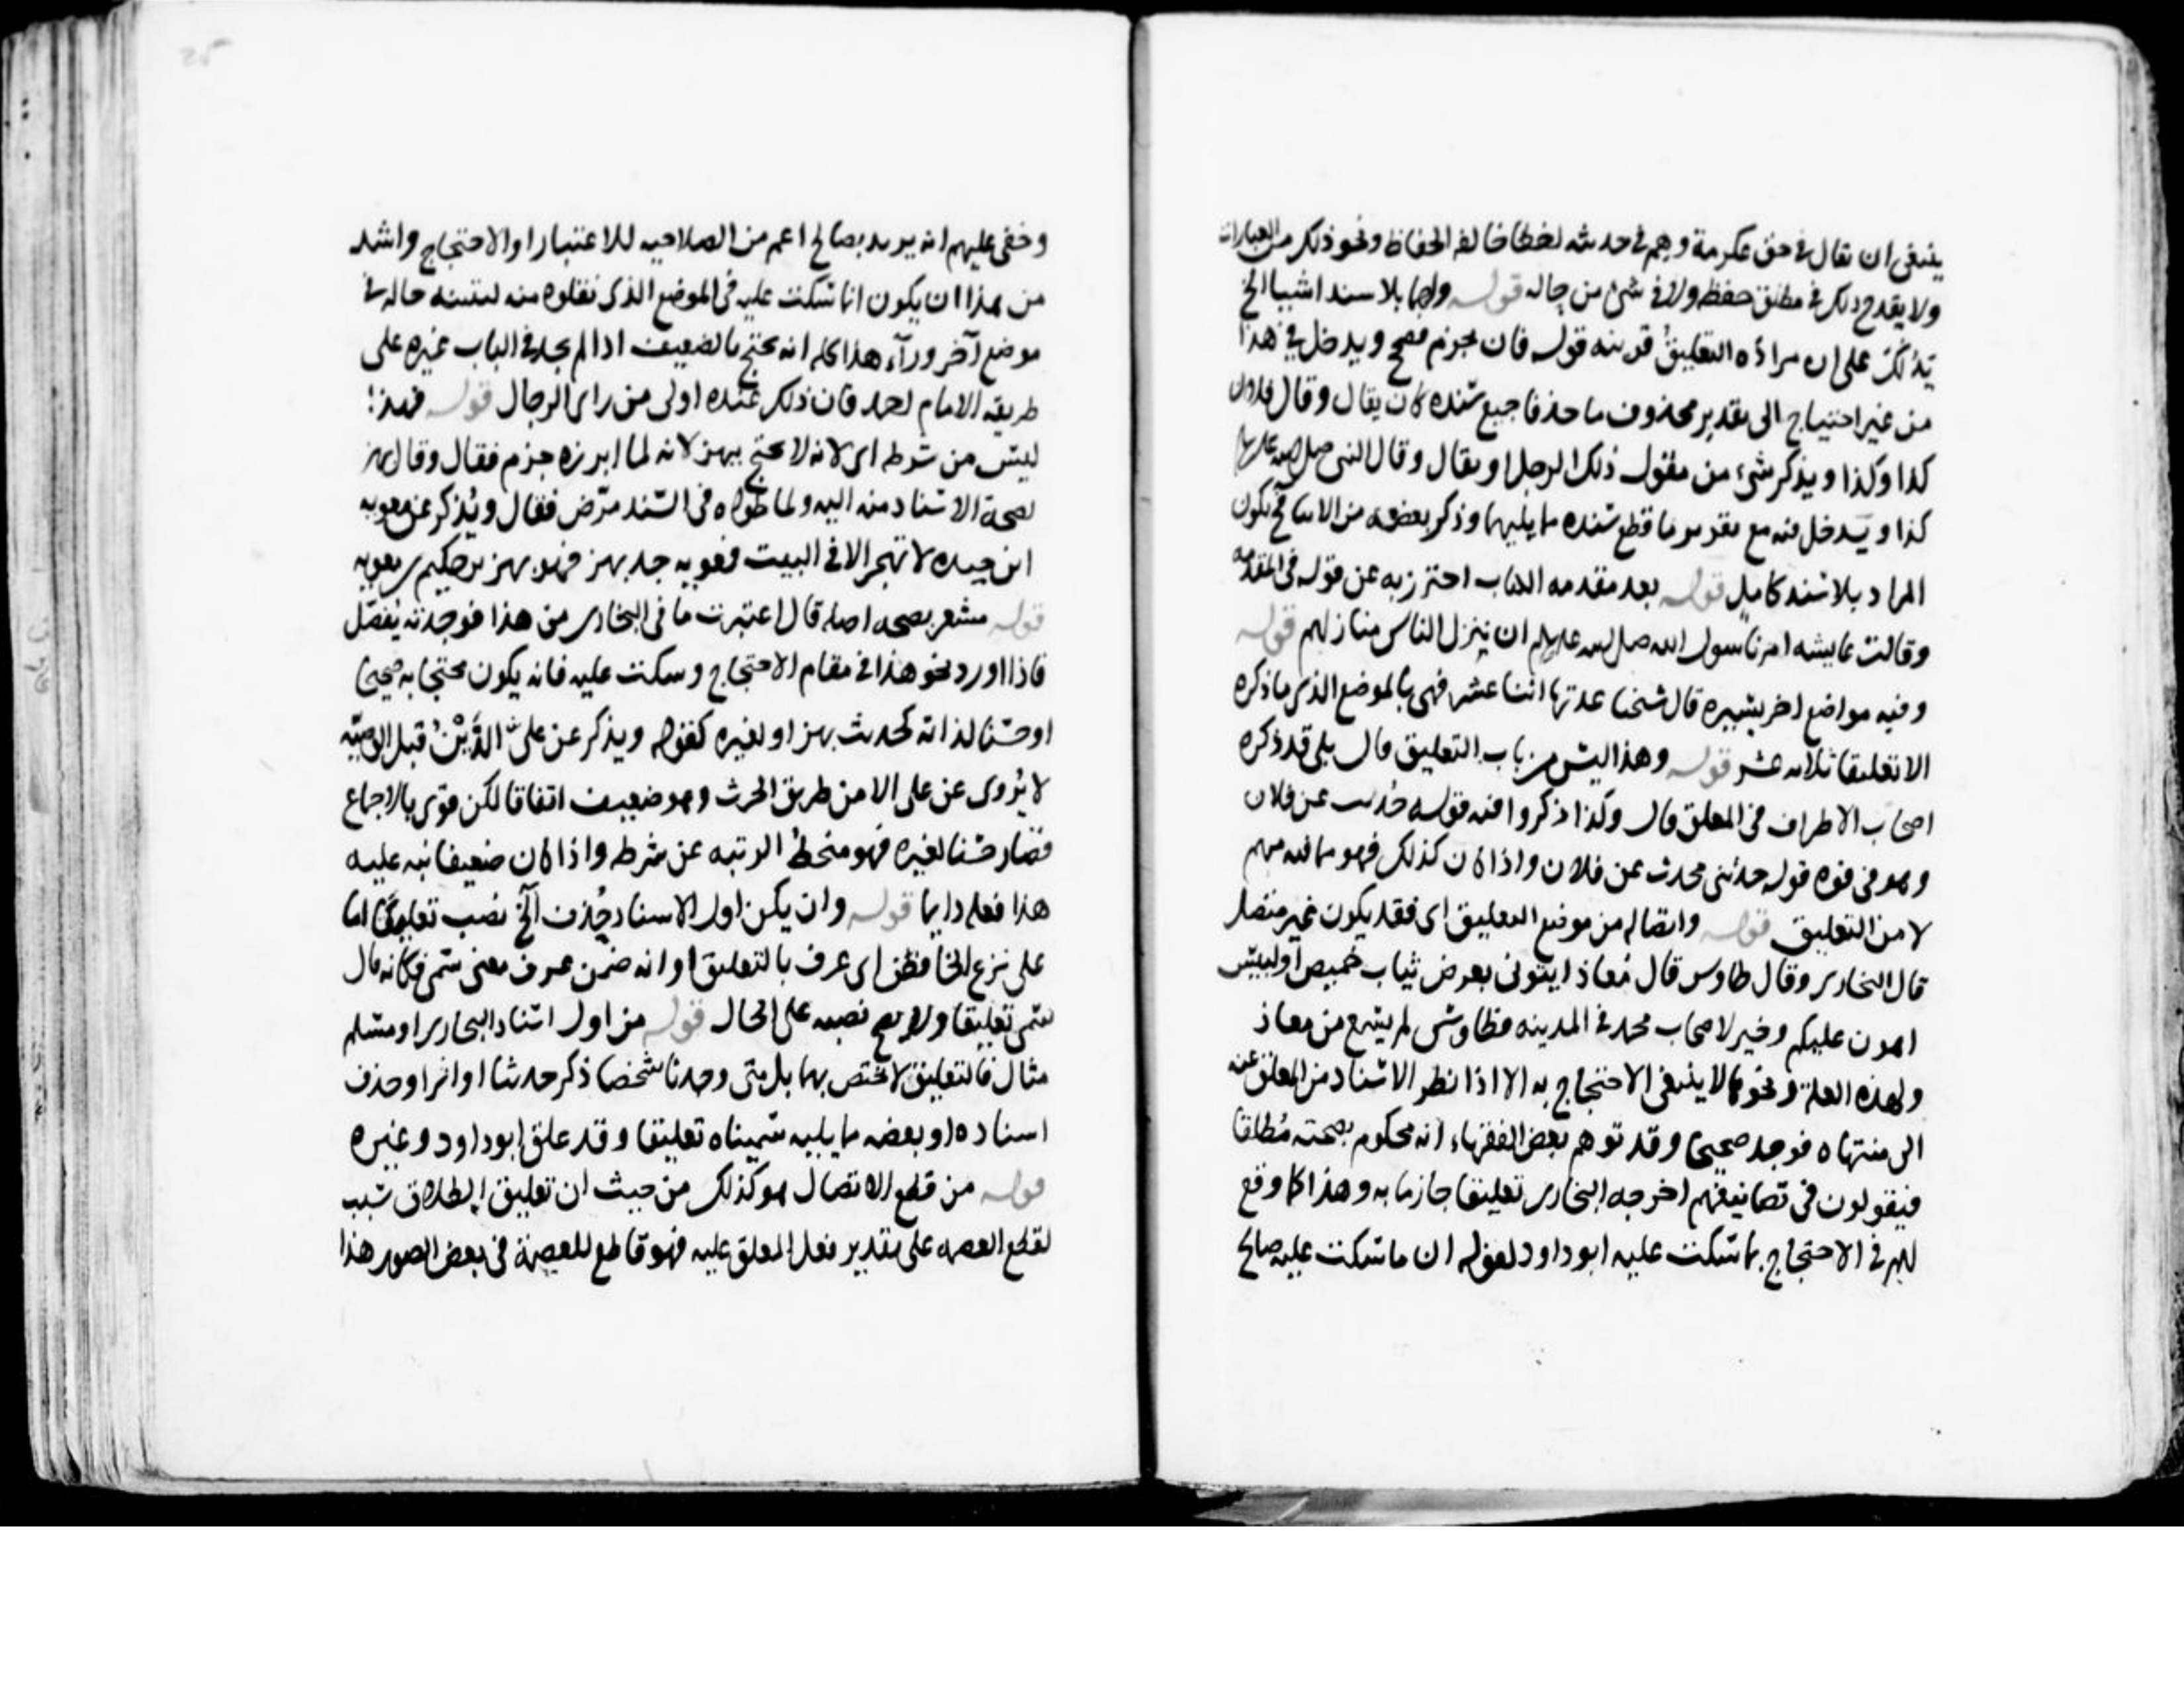 ينبغي ان يقال في حق عكرمة وهم في حديثه لخطا خالفه الحفاظ ونحو ذلك من العبارات
ولا يقدح ذلك في مطلق حفظه ولا في شئ من حاله قوله ولهما بلا سند اشيا الخ
يدلك على ان مراده التعليق قرينه قوله فان يجزم فصحح ويدخل في هذا
من غير احتياج الى تقدير محذوف ما حذفا جميع سنده كان يقال وقال فلان
كذا وكذا ويذكر شيء من مقول ذلك الرجل او يقال وقال النبي صلى الله عليه
كذا ويدخل فيه مع تقدير ما قطع سنده مما يليهما وذكر بعضه من الاسا في يكون
المراد بلا سند كامل قوله بعد مقدمه الكتاب احترز به عن قوله في المقدمه
وقالت عايشه امرنا رسول الله صلى الله عليه ان ننزل الناس منازلهم قوله
وفيه مواضع اخر يسيره قال شيخنا عدتها اثنا عشر فهي بالموضع الذي ما ذكره
الا تعليقا ثلاثه عشر قوله وهذا ليس من باب التعليق قال بلى قد ذكره
اصحاب الاطراف في المعلق قال وكذا ذكروا فيه قوله حُدثت عن فلان
وهو في قوه قوله حدثني محدث عن فلان واذا كان كذلك فهو مما فيه مبهم
لا من التعليق قوله واتصاله من موضع التعليق اي فقد يكون غير متصل
قال البخاري وقال طاوس قال مُعاذ ايتوني بعرض ثياب خميص او لبيس
اهون عليكم وخير لاصحاب محمد في المدينه فطاوس لم يسمع من معاذ
ولهذه العلة ونحوها لا ينبغي الاحتجاج به الا اذا نظر الاسناد من المعلق عنه
الى منتهاه فوجد صحيحا وقد توهم بعض الفقهاء انه محكوم بصحته مُطلقا
فيقولون في تصانيفهم اخرجه البخاري تعليقا جازما به وهذا كما وقع
لهم في الاحتجاج بما سكت عليه ابو داود لقوله ان ما سكت عليه صالح
وخفي عليهم انه يريد بصالح اعم من الصلاحيه للاعتبار او الاحتجاج واشد
من هذا ان يكون انما سكت عليه في الموضع الذي نقلوه منه لتبينه حاله في
موضع آخر وورآء هذا كله انه يحتج بالضعيف اذا لم يجد في الباب غيره على
طريقه الامام احمد فان ذلك عنده اولى من راى الرجال قوله فهذا
ليس من شرطه اي لانه لا يحتج ببهز لانه لما ابرزه جزم فقال وقال بهز
لصحة الاسناد منه اليه ولما طواه في السند مرّض فقال ويُذكر عن معويه
ابن حيده لا تهجر الا في البيت فمعويه جد بهز فهو بهز بن حكيم بن معويه
قوله مشعر بصحه اصله قال اعتبرت ما في البخاري من هذا فوجدته يُفصّل
فاذا اورد نحو هذا في مقام الاحتجاج وسكت عليه فانه يكون محتجا به صحيحا
او حسنا لذاته كحديث بهز او لغيره كقوله ويذكر عن عليّ الدَّيْنُ قبل الوصيّه
لا يُروى عن على الا من طريق الحرث وهو ضعيف اتفاقا لكن قوّي بالاجماع
فصار حسنا لغيره فهو منحط الرتبه عن شرطه واذا كان ضعيفا نبه عليه
هذا فعله دايما قوله وان يكن اول الاسناد حُذف آلخ نصب تعليقا اما
على نزع الخافض اى عرف بالتعليق او انه ضمن عرف معنى سمى فكانه قال
سمى تعليقا ولا يصح نصبه على الحال قوله من اول اسناد البخاري او مسلم
مثال فالتعليق لا يختص بهما بل متى وجدنا شخصا ذكر حديثا او اثرا وحذف
اسناده او بعضه مما يليه سميناه تعليقا وقد علق ابو داود وغيره
قوله من قطع الاتصال هو كذلك من حيث ان تعليق الطلاق سبب
لقطع العصمه على تقدير فعل المعلق عليه فهو قاطع للعصمة في بعض الصور هذا